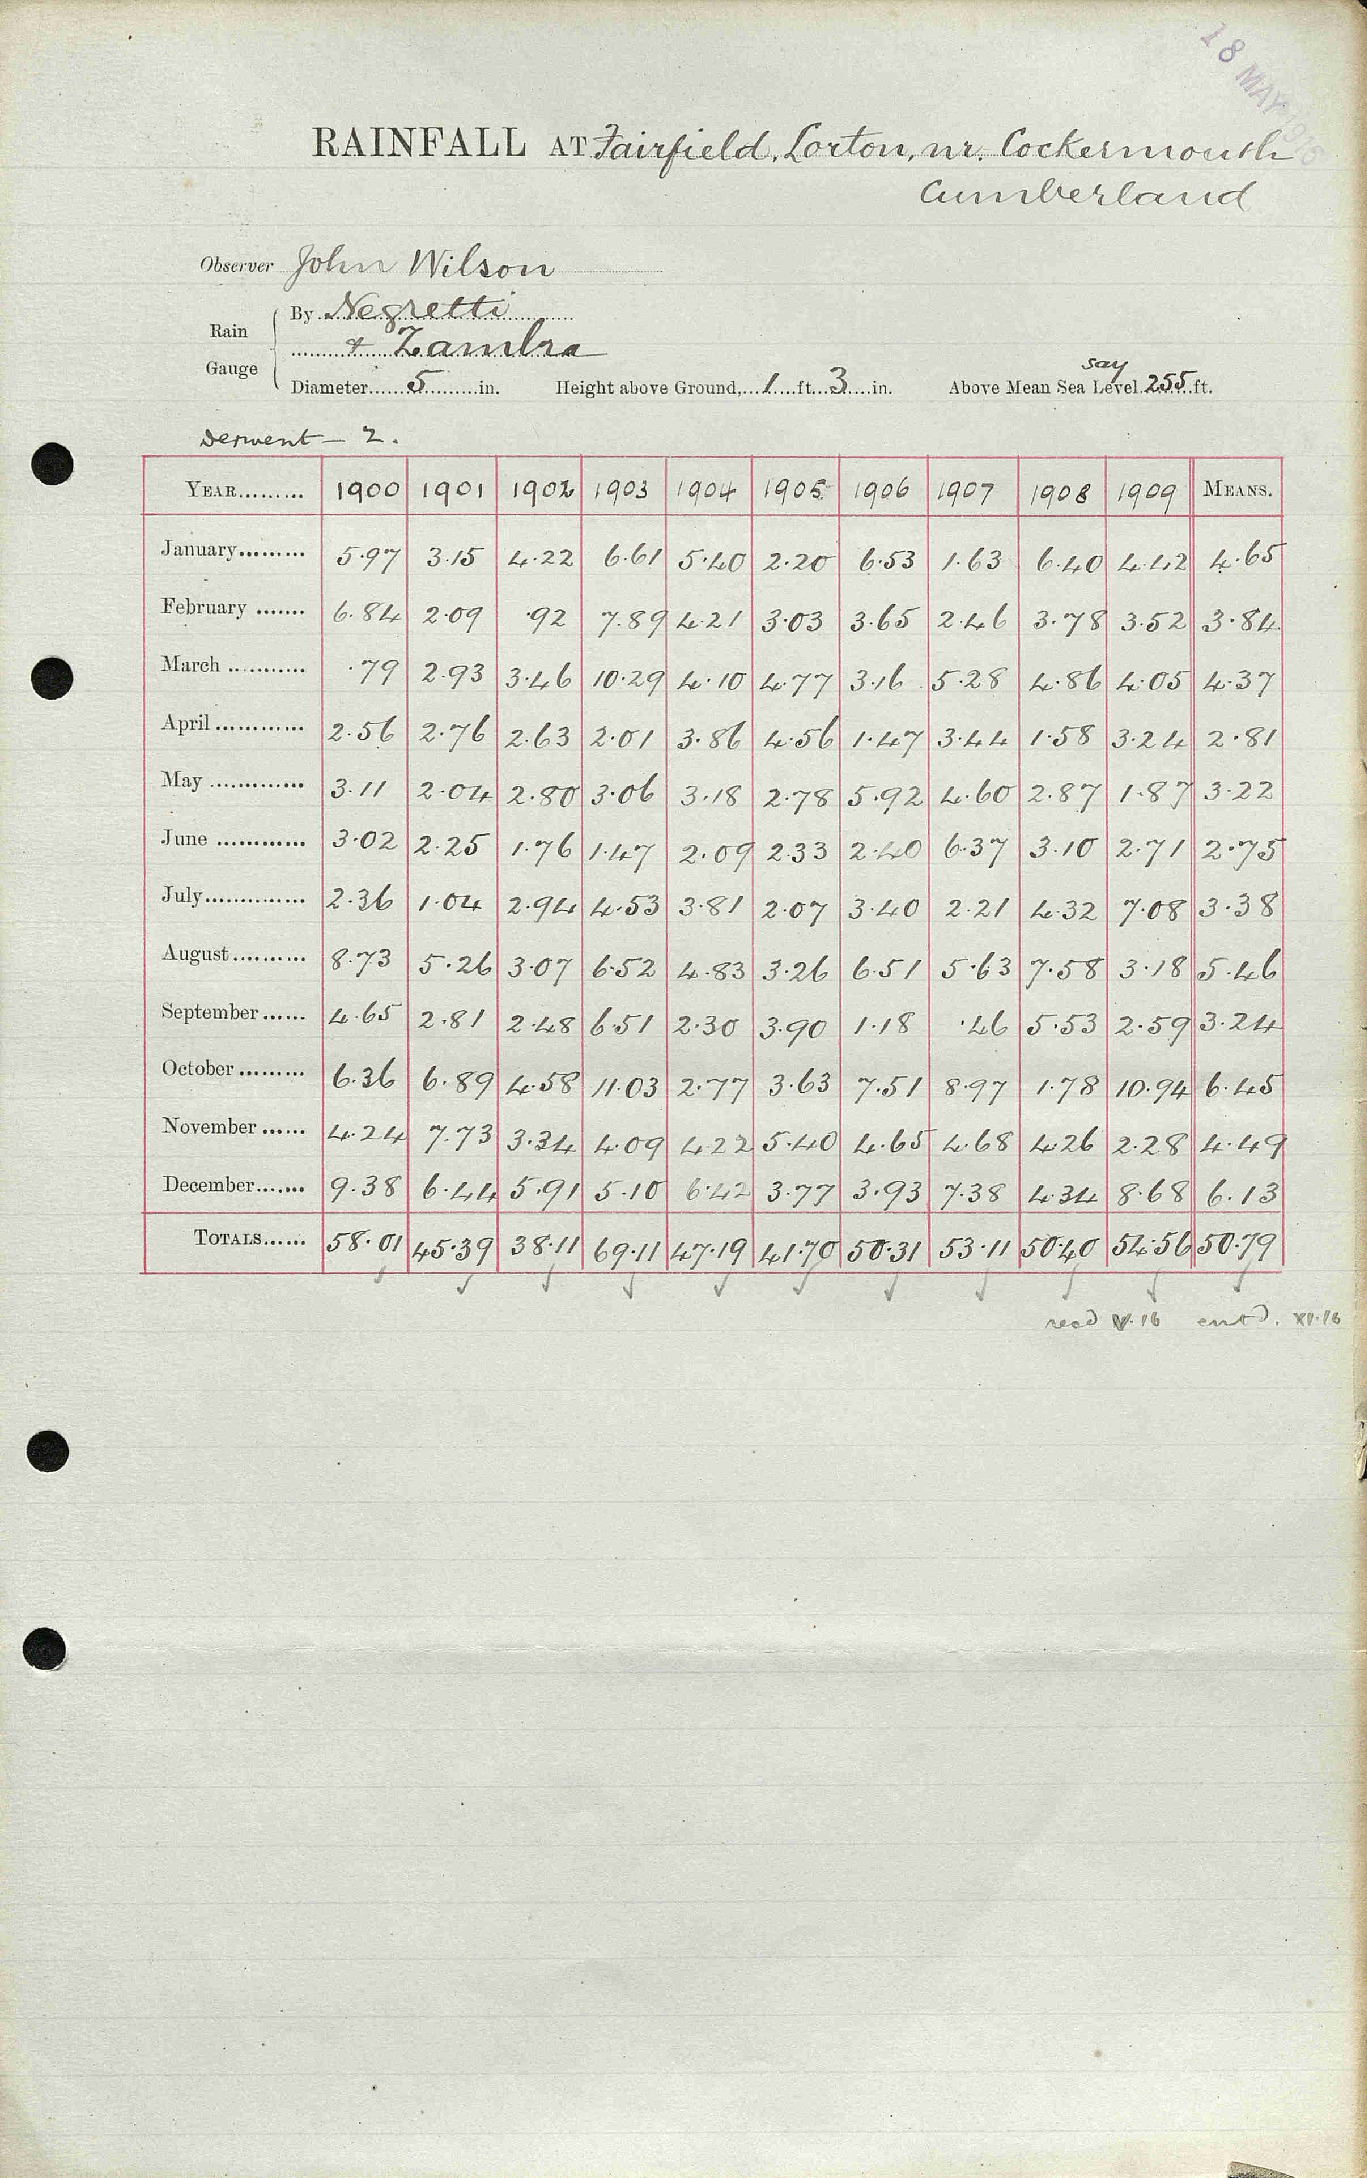 18 MAY 1916
RAINFALL AT Fairfield, Lorton, nr. Cockermouth
Cumberland
Observer John Wilson
Rain Gauge By Negretti
& Zambra
say
Diameter......5.........in. Height above Ground,...1....ft...3....in. Above Mean Sea Level.255.ft.
Derwent — 2.
YEAR......... 1900 1901 1902 1903 1904 1905 1906 1907 1908 1909 MEANS.
January......... 5.97 3.15 4.22 6.61 5.40 2.20 6.53 1.63 6.40 4.42 4.65
February ....... 6.84 2.09 .92 7.89 4.21 3.03 3.65 2.46 3.78 3.52 3.84
March ........... .79 2.93 3.46 10.29 4.10 4.77 3.16 5.28 4.86 4.05 4.37
April............. 2.56 2.76 2.63 2.01 3.86 4.56 1.47 3.44 1.58 3.24 2.81
May .............. 3.11 2.04 2.80 3.06 3.18 2.78 5.92 4.60 2.87 1.87 3.22
June ............. 3.02 2.25 1.76 1.47 2.09 2.33 2.40 6.37 3.10 2.71 2.75
July............... 2.36 1.04 2.94 4.53 3.81 2.07 3.40 2.21 4.32 7.08 3.38
August........... 8.73 5.26 3.07 6.52 4.83 3.26 6.51 5.63 7.58 3.18 5.46
September...... 4.65 2.81 2.48 6.51 2.30 3.90 1.18 .46 5.53 2.59 3.24
October......... 6.36 6.89 4.58 11.03 2.77 3.63 7.51 8.97 1.78 10.94 6.45
November...... 4.24 7.73 3.34 4.09 4.22 5.40 4.65 4.68 4.26 2.28 4.49
December....... 9.38 6.44 5.91 5.10 6.42 3.77 3.93 7.38 4.34 8.68 6.13
TOTALS...... 58.01 45.39 38.11 69.11 47.19 41.70 50.31 53.11 50.40 54.56 50.79
recd V.16 entd. XI.16